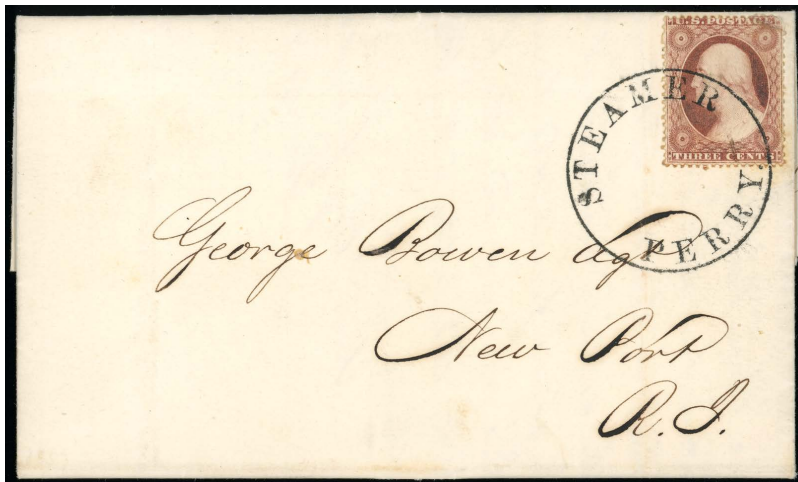 U.S. POSTAGE
THREE CENTS
STEAMER
PERRY.
George Bowen Esqr
New Port
R.I.